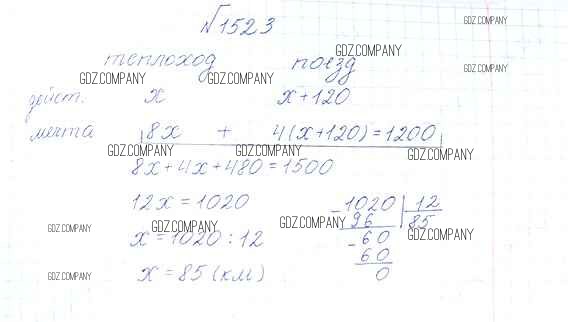 №1523
GDZ.COMPANY
GDZ.COMPANY
теплоход поезд
GDZ.COMPANY GDZ.COMPANY GDZ.COMPANY
дейст. x x+120
мечта 8x + 4(x+120)=1200
GDZ.COMPANY GDZ.COMPANY GDZ.COMPANY
8x+4x+480=1500
12x=1020
1020 12
- 96 85
GDZ.COMPANY GDZ.COMPANY GDZ.COMPANY GDZ.COMPANY
x=1020:12
- 60
60
x=85(км)
0
GDZ.COMPANY